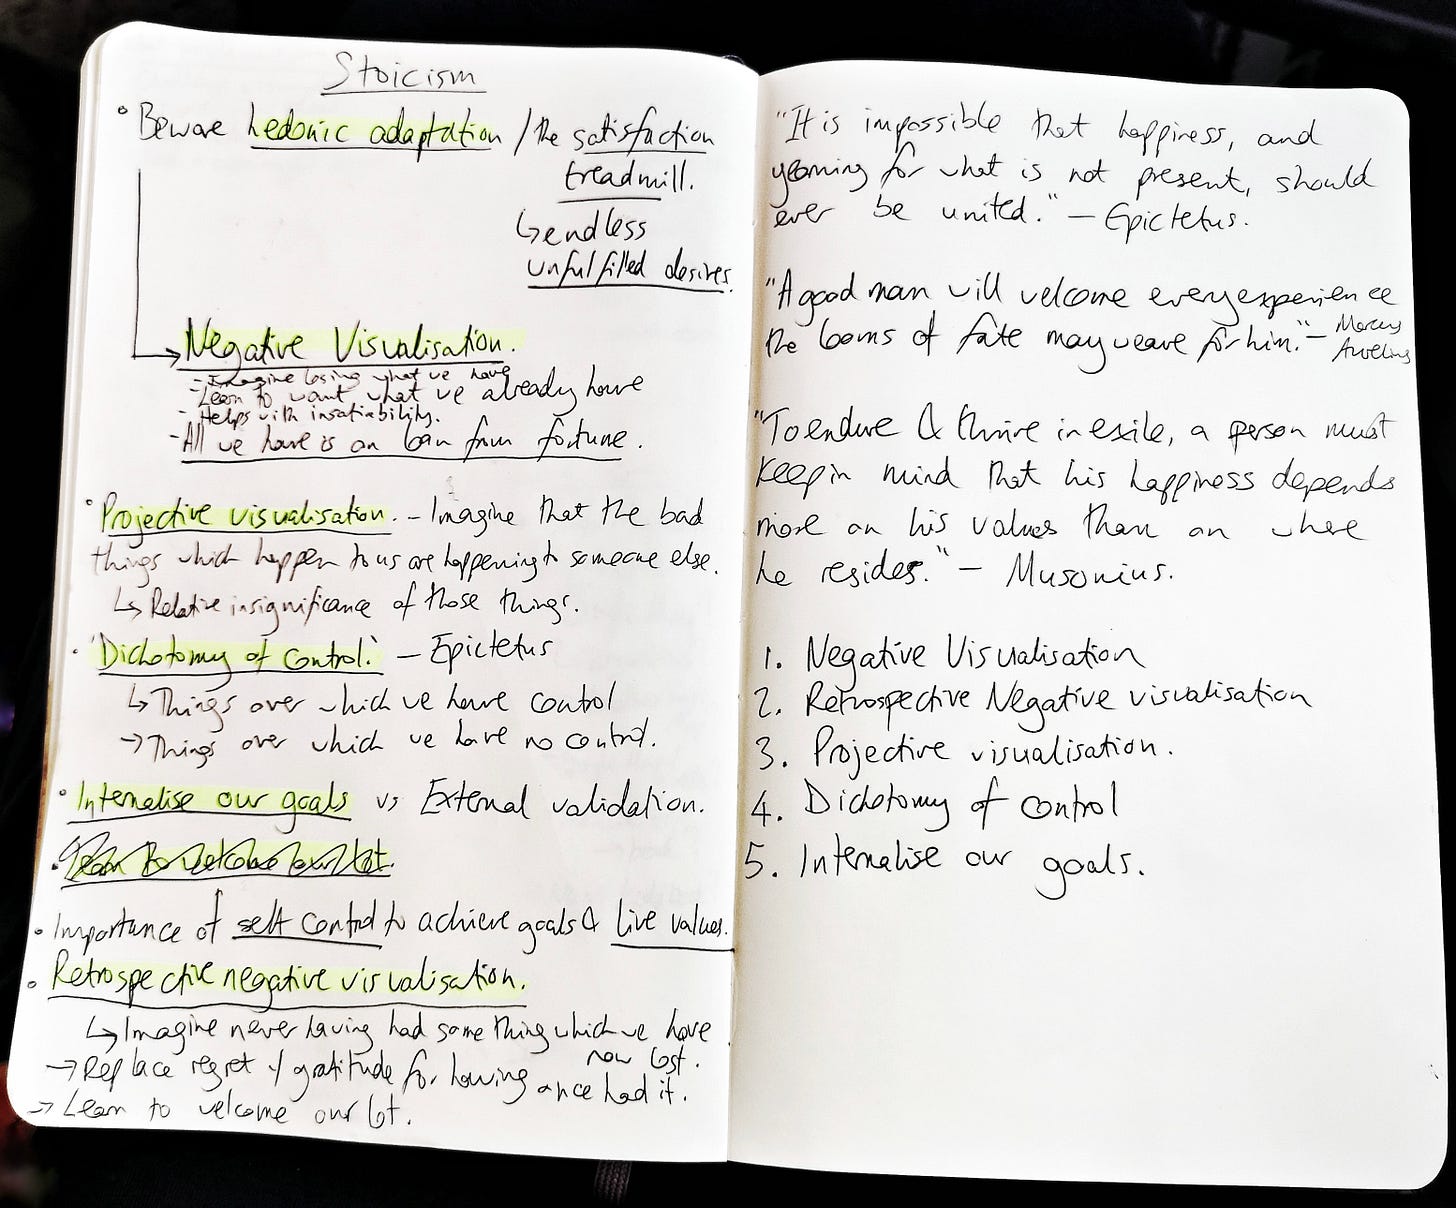 Stoicism
° Beware hedonic adaptation / the satisfaction
treadmill.
↳ endless
unfulfilled desires.
→ Negative Visualisation.
- Imagine losing what we have
- Learn to want what we already have
- Helps with insatiability.
- All we have is on loan from fortune.
• Projective visualisation. – Imagine that the bad
things which happen to us are happening to someone else.
↳ Relative insignificance of those things.
• 'Dichotomy of control.' – Epictetus
↳ Things over which we have control
→ Things over which we have no control.
• Internalise our goals vs External validation.
• Learn to welcome our lot.
• Importance of self control to achieve goals & live values.
• Retrospective negative visualisation.
↳ Imagine never having had something which we have
now lost.
→ Replace regret w/ gratitude for having once had it.
→ Learn to welcome our lot.
"It is impossible that happiness, and
yearning for what is not present, should
ever be united." – Epictetus.
"A good man will welcome every experience
the looms of fate may weave for him." – Marcus
Aurelius
"To endure & thrive in exile, a person must
keep in mind that his happiness depends
more on his values than on where
he resides." – Musonius.
1. Negative Visualisation
2. Retrospective Negative visualisation
3. Projective visualisation.
4. Dichotomy of control
5. Internalise our goals.